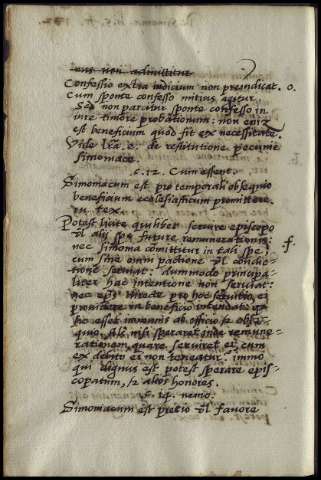 eius non admittitur
Confessio extra iudicium non preiudicat. o.
Cum sponte confesso mitius agitur.
Sed non paritur sponte confesso in
iure timore probationum: non enim
est beneficium quod fit ex necessitate.
Vide lra. e. de restitutione pecunie
simoniace.
c. 12. Cum essent.
Simoniacum est pro temporali obsequio
beneficium ecclesiasticum promittere.
in tex.
Potest licite quilibet servire episcopo
vl alij spe future remunerationis: f.
nec simonia comittitur in tali spe
cum sine omni pactione vl condi-
tione serviat: dummodo principa-
liter hac intentione non serviat:
nec eps directe pro hoc servitio, ei
providere in beneficio intendat
esset immunis ab officio et obse-
quio. nisi speraret inde remune-
rationem quare serviret ei, cum
ex debito ei non teneatur. immo
qui dignus est potest sperare epis-
copatum, et alios honores.
c. 13. nemo.
Simoniacum est precio vl favore